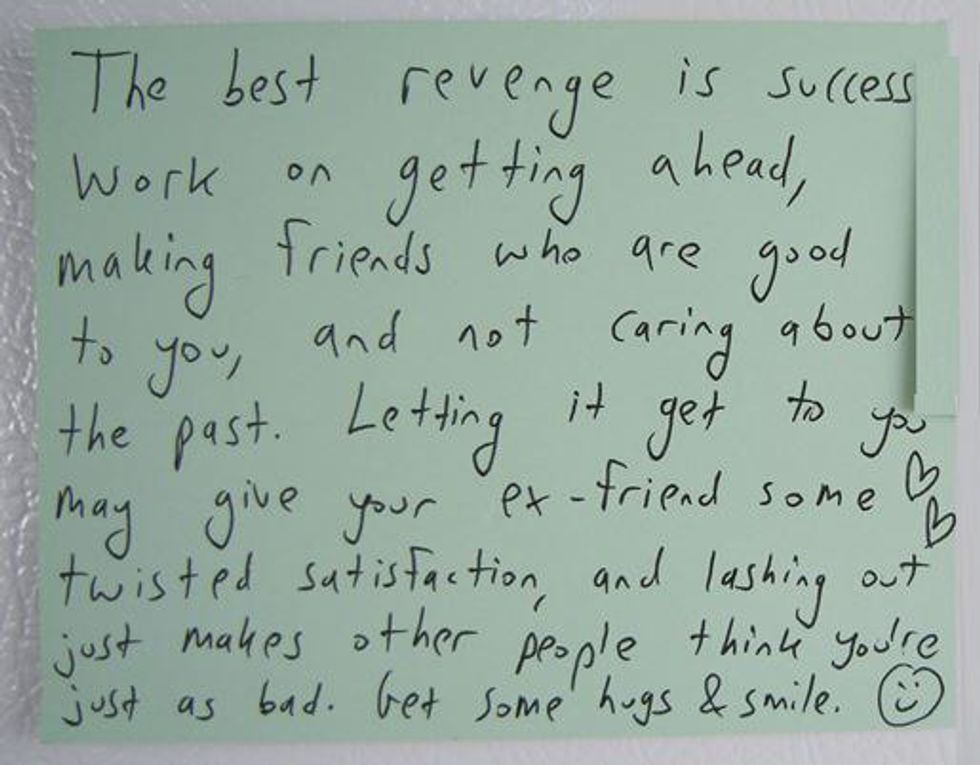 The best revenge is success
Work on getting ahead,
making friends who are good
to you, and not caring about
the past. Letting it get to you
may give your ex-friend some ♡
♡
twisted satisfaction, and lashing out
just makes other people think you're
just as bad. Get some hugs & smile. ☺